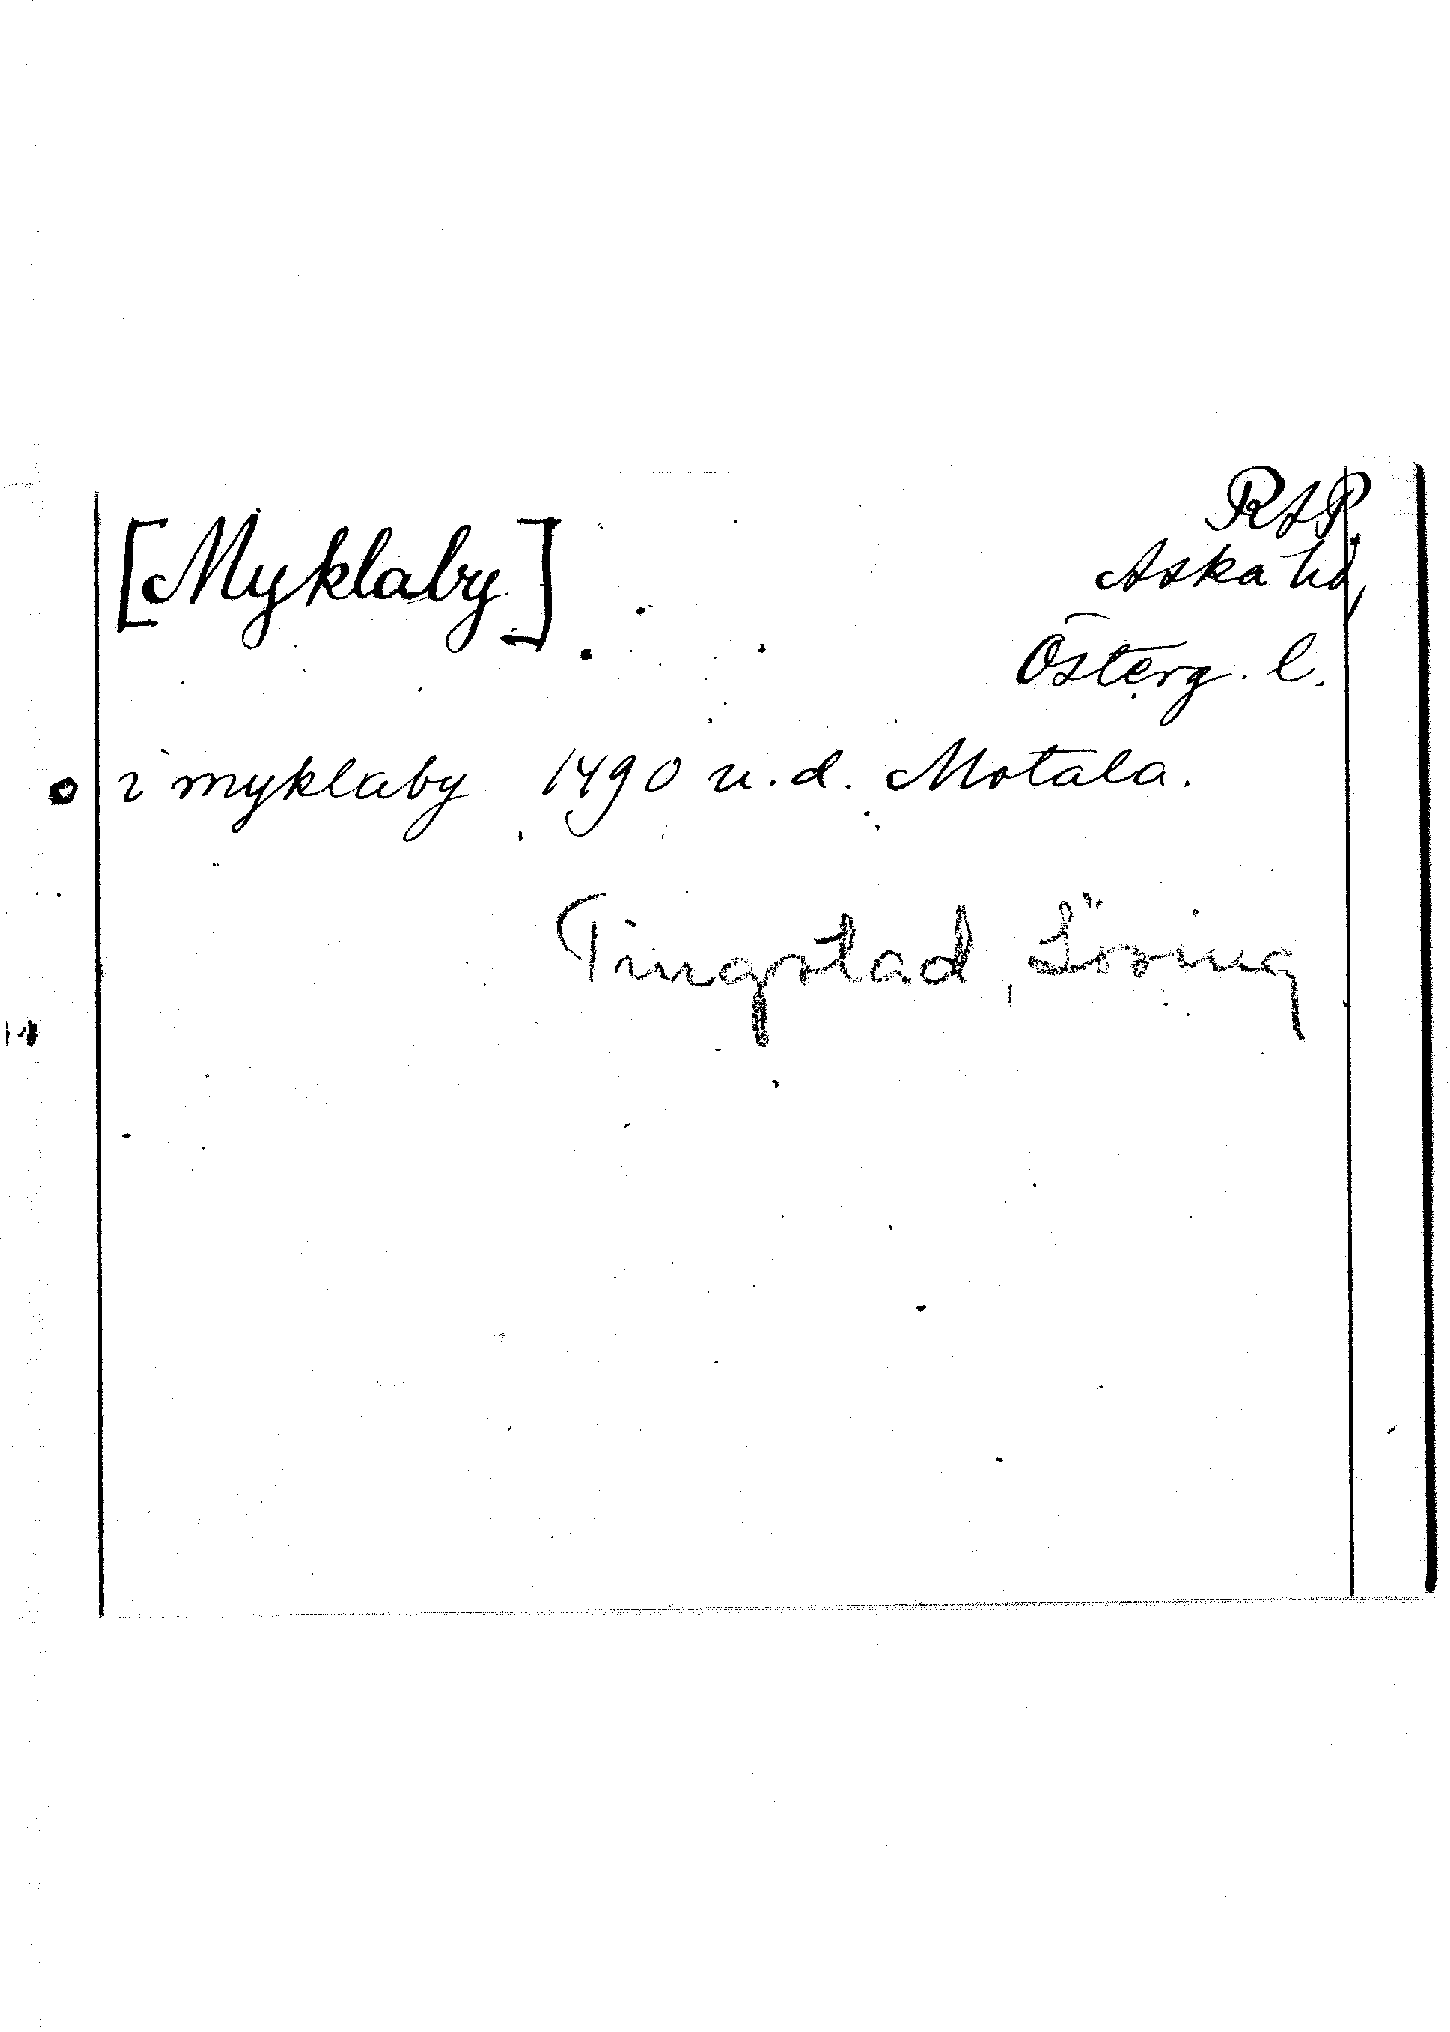 RAP.
[Myklaby]
Aska hd,
Österg. l.
i myklaby 1490 u.d. Motala.
Tingstad, Lösing